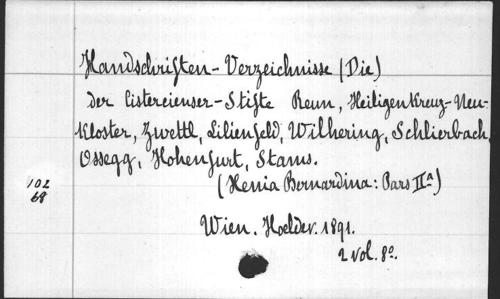 Handschriften-Verzeichnisse (Die)
der Cistercienser-Stifte Reun, Heiligenkreuz-Neu-
kloster, Zwettl, Lilienfeld, Wilhering, Schlierbach,
Ossegg, Hohenfurt, Stams.
(Xenia Bernardina: Pars IIa)
102
68
Wien. Hoelder. 1891.
2 vol. 8o.